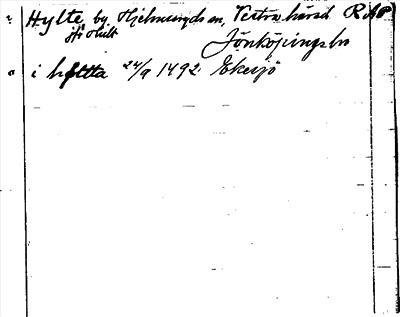 Hylte by Hjelmseryds sn, Vestra härad RAP
Jfr Hult
Jönköpings ln
i hyltta 24/9 1492 Eksjö